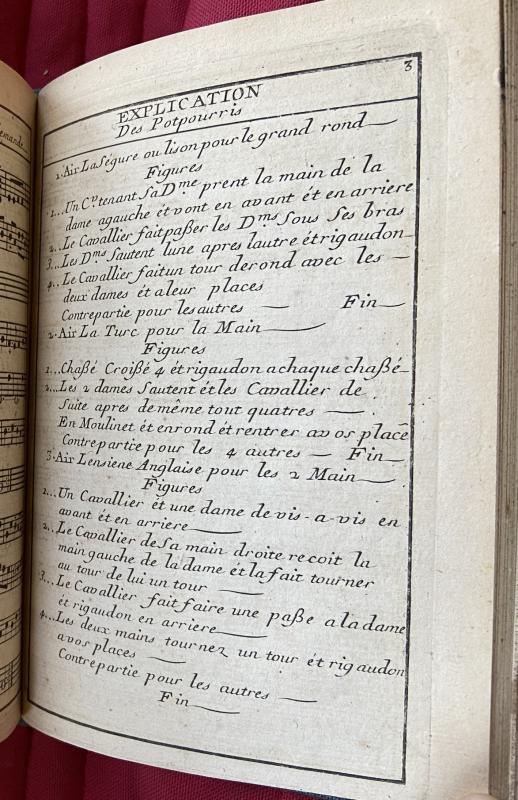 emarde
3
EXPLICATION
Des Potpourris
1.Air La Ségure ou lison pour le grand rond
Figures
1...Un C.er tenant Sa D.me prent la main de la
dame agauche ét vont en avant ét en arriere
2..Le Cavallier fait paßer les D.ms Sous Ses bras
3...Les D.ms Sautent lune apres lautre ét rigaudon
4..Le Cavallier fait un tour de rond avec les
deux dames ét a leur places
Contrepartie pour les autres Fin
2.Air La Turc pour la Main
Figures
1...Chaßé Croißé 4 ét rigaudon a chaque chaßé
2...Les 2 dames Sautent ét les Cavallier de
Suite apres de même tout quatres
En Moulinet ét en rond ét rentrer a vos place
Contrepartie pour les 4 autres Fin
3.Air Lensiene Anglaise pour les 2 Main
Figures
1...Un Cavallier ét une dame de vis-a-vis en
avant ét en arriere
2...Le Cavallier de Sa main droite recoit la
main gauche de la dame ét la fait tourner
au tour de lui un tour
3...Le Cavallier fait faire une paße a la dame
ét rigaudon en arriere
4...Les deux mains tournez un tour ét rigaudon
a vos places
Contrepartie pour les autres
Fin